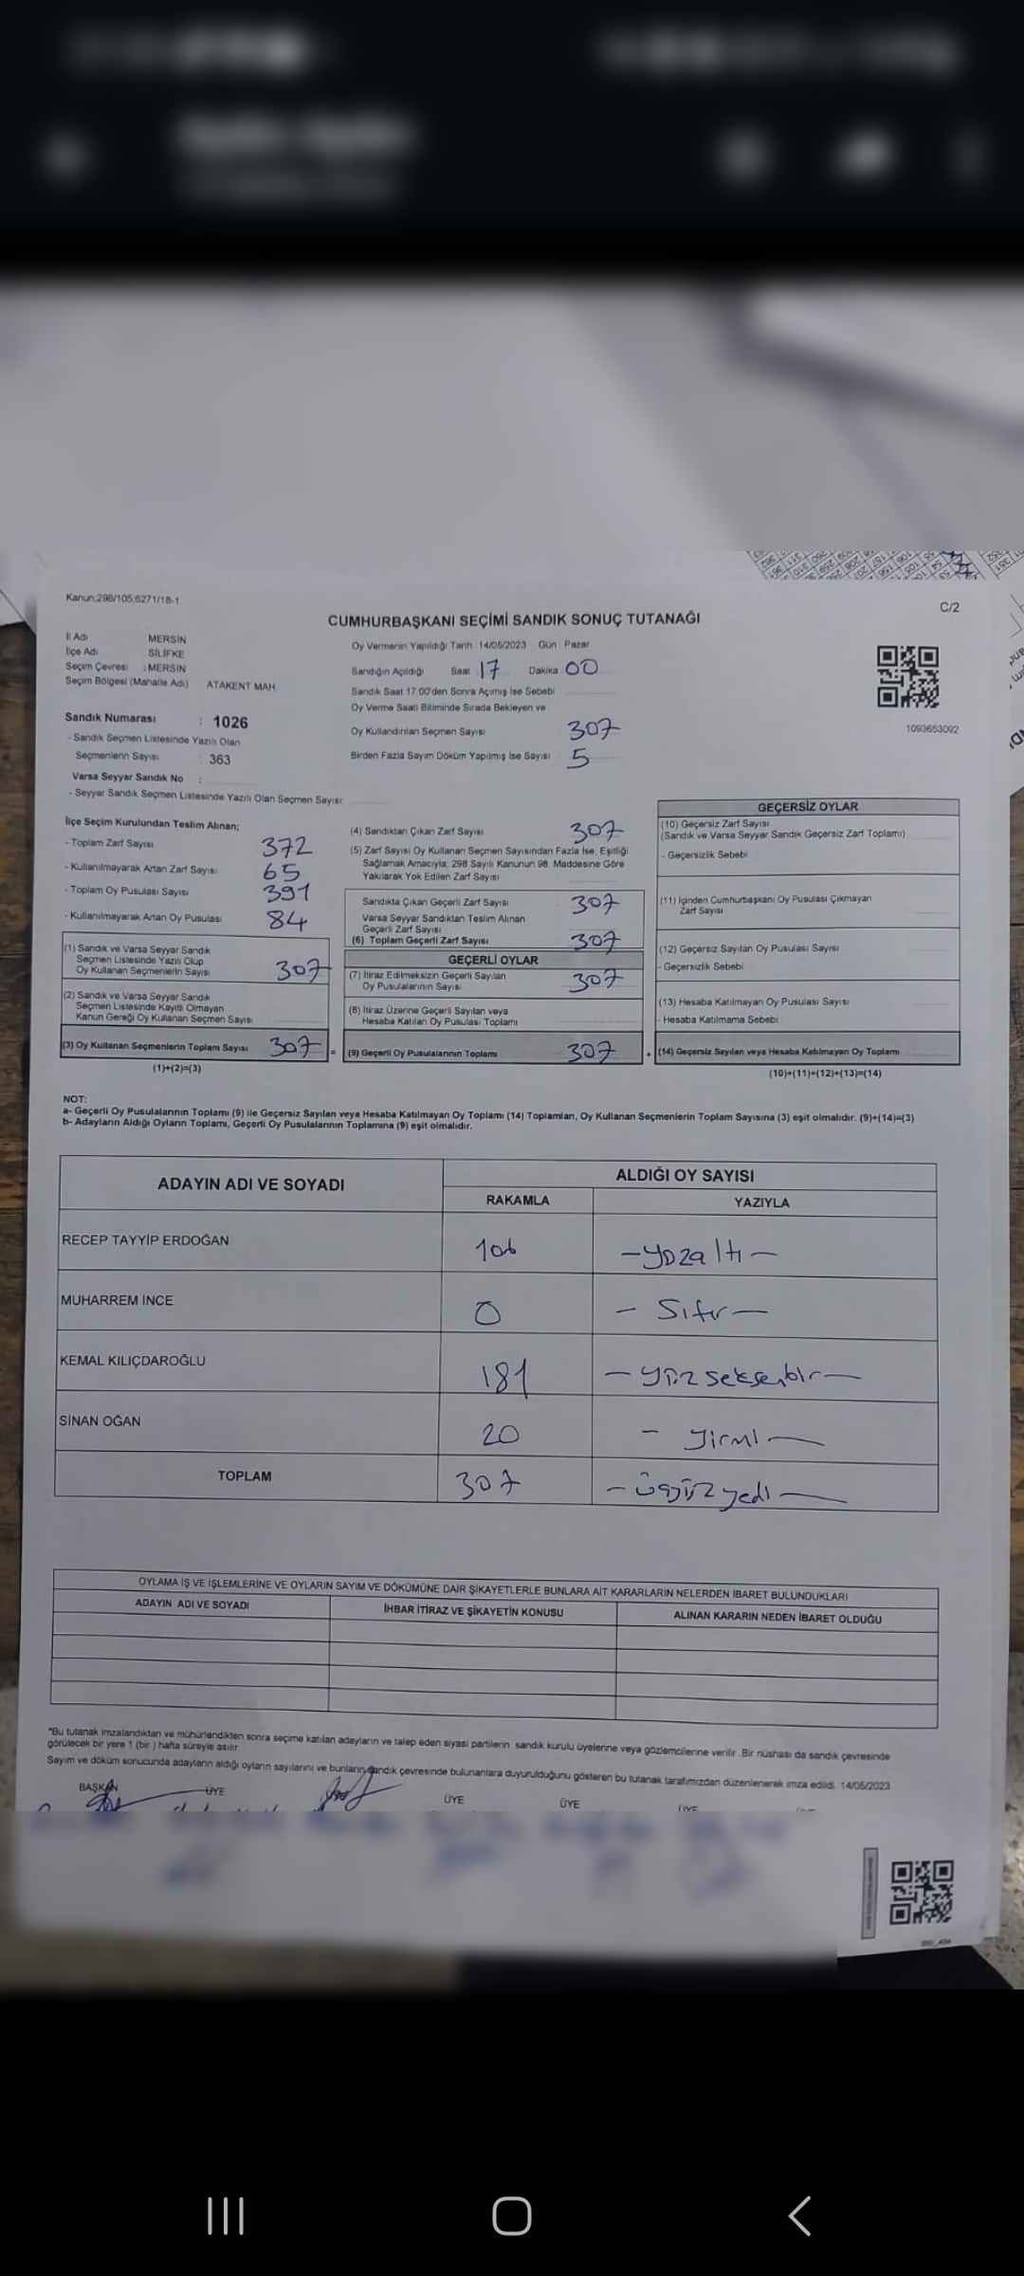 Kanun:298/105;6271/18-1
C/2
CUMHURBAŞKANI SEÇİMİ SANDIK SONUÇ TUTANAĞI
İl Adı MERSİN
İlçe Adı SİLİFKE
Seçim Çevresi : MERSİN
Seçim Bölgesi (Mahalle Adı) ATAKENT MAH.
Oy Vermenin Yapıldığı Tarih 14/05/2023 Gün Pazar
Sandığın Açıldığı Saat 17 Dakika 00
Sandık Saat 17:00'den Sonra Açımış İse Sebebi
Oy Verme Saati Bitiminde Sırada Bekleyen ve
Oy Kullandırılan Seçmen Sayısı 307
Birden Fazla Sayım Döküm Yapılmış İse Sayısı 5
1093653092
Sandık Numarası : 1026
- Sandık Seçmen Listesinde Yazılı Olan
Seçmenlerin Sayısı : 363
Varsa Seyyar Sandık No :
- Seyyar Sandık Seçmen Listesinde Yazılı Olan Seçmen Sayısı:
İlçe Seçim Kurulundan Teslim Alınan;
- Toplam Zarf Sayısı 372
- Kullanılmayarak Artan Zarf Sayısı 65
- Toplam Oy Pusulası Sayısı 391
- Kullanılmayarak Artan Oy Pusulası 84
(1) Sandık ve Varsa Seyyar Sandık
Seçmen Listesinde Yazılı Olup
Oy Kullanan Seçmenlerin Sayısı 307
(2) Sandık ve Varsa Seyyar Sandık
Seçmen Listesinde Kayıtlı Olmayan
Kanun Gereği Oy Kullanan Seçmen Sayısı
(3) Oy Kullanan Seçmenlerin Toplam Sayısı 307 =
(1)+(2)=(3)
(4) Sandıktan Çıkan Zarf Sayısı 307
(5) Zarf Sayısı Oy Kullanan Seçmen Sayısından Fazla İse, Eşitliği
Sağlamak Amacıyla; 298 Sayılı Kanunun 98. Maddesine Göre
Yakılarak Yok Edilen Zarf Sayısı
Sandıkta Çıkan Geçerli Zarf Sayısı 307
Varsa Seyyar Sandıktan Teslim Alınan
Geçerli Zarf Sayısı
(6) Toplam Geçerli Zarf Sayısı 307
GEÇERLİ OYLAR
(7) İtiraz Edilmeksizin Geçerli Sayılan
Oy Pusulalarının Sayısı 307
(8) İtiraz Üzerine Geçerli Sayılan veya
Hesaba Katılan Oy Pusulası Toplamı
(9) Geçerli Oy Pusulalarının Toplamı 307 +
GEÇERSİZ OYLAR
(10) Geçersiz Zarf Sayısı
(Sandık ve Varsa Seyyar Sandık Geçersiz Zarf Toplamı)
- Geçersizlik Sebebi
(11) İçinden Cumhurbaşkanı Oy Pusulası Çıkmayan
Zarf Sayısı
(12) Geçersiz Sayılan Oy Pusulası Sayısı
- Geçersizlik Sebebi
(13) Hesaba Katılmayan Oy Pusulası Sayısı
- Hesaba Katılmama Sebebi
(14) Geçersiz Sayılan veya Hesaba Katılmayan Oy Toplamı
(10)+(11)+(12)+(13)=(14)
NOT:
a- Geçerli Oy Pusulalarının Toplamı (9) ile Geçersiz Sayılan veya Hesaba Katılmayan Oy Toplamı (14) Toplamları, Oy Kullanan Seçmenlerin Toplam Sayısına (3) eşit olmalıdır. (9)+(14)=(3)
b- Adayların Aldığı Oyların Toplamı, Geçerli Oy Pusulalarının Toplamına (9) eşit olmalıdır.
ADAYIN ADI VE SOYADI ALDIĞI OY SAYISI
RAKAMLA YAZIYLA
RECEP TAYYİP ERDOĞAN 106 - yüzaltı -
MUHARREM İNCE 0 - Sıfır -
KEMAL KILIÇDAROĞLU 181 - yüzseksenbir -
SİNAN OĞAN 20 - yirmi -
TOPLAM 307 - üçyüzyedi -
OYLAMA İŞ VE İŞLEMLERİNE VE OYLARIN SAYIM VE DÖKÜMÜNE DAİR ŞİKAYETLERLE BUNLARA AİT KARARLARIN NELERDEN İBARET BULUNDUKLARI
ADAYIN ADI VE SOYADI İHBAR İTİRAZ VE ŞİKAYETİN KONUSU ALINAN KARARIN NEDEN İBARET OLDUĞU
*Bu tutanak imzalandıktan ve mühürlendikten sonra seçime katılan adayların ve talep eden siyasi partilerin sandık kurulu üyelerine veya gözlemcilerine verilir. Bir nüshası da sandık çevresinde
görülecek bir yere 1 (bir) hafta süreyle asılır.
Sayım ve döküm sonucunda adayların aldığı oyların sayılarını ve bunların sandık çevresinde bulunanlara duyurulduğunu gösteren bu tutanak tarafımızdan düzenlenerek imza edildi. 14/05/2023
BAŞKAN ÜYE ÜYE ÜYE ÜYE